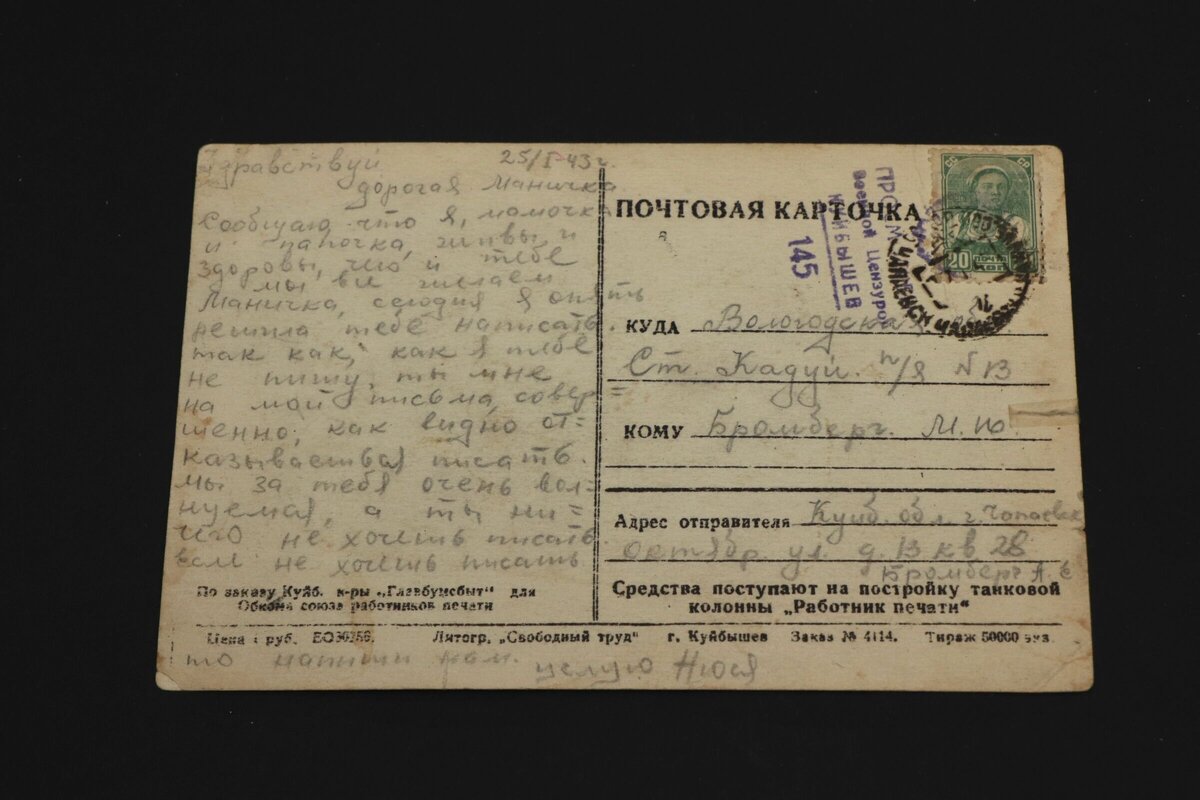 Здравствуй 25/I-43г.
дорогая Маничка
Сообщаю что я, мамочка
и папочка, живы, и
здоровы, чего и тебе
мы все желаем
Маничка, сегодня я опять
решила тебе написать.
так как, как я тебе
не пишу, ты мне
на мои письма, совер=
шенно, как видно от=
казываешься писать.
мы за тебя очень вол=
нуемся, а ты ни=
чего не хочешь писать.
не хочешь писать
По заказу Куйб. к-ры „Главбумсбыт" для
Обкома союза работников печати
ПОЧТОВАЯ КАРТОЧКА
Военной Цензурой
КУЙБЫШЕВ
145
СССР
20 ПОЧТА
КОП
ЧАПАЕВСК
КУДА Вологодская обл.
Ст. Кадуй. п/я N 13
КОМУ Бромберг. М. Ю.
Адрес отправителя Куйб. обл. г. Чапаевск
Октябр. ул. д. 13 кв 28
Бромберг А.
Средства поступают на постройку танковой
колонны „Работник печати"
Цена 1 руб. Литогр. „Свободный труд" г. Куйбышев Заказ № 4114. Тираж 50000 экз.
то напиши нам. целую Нюся